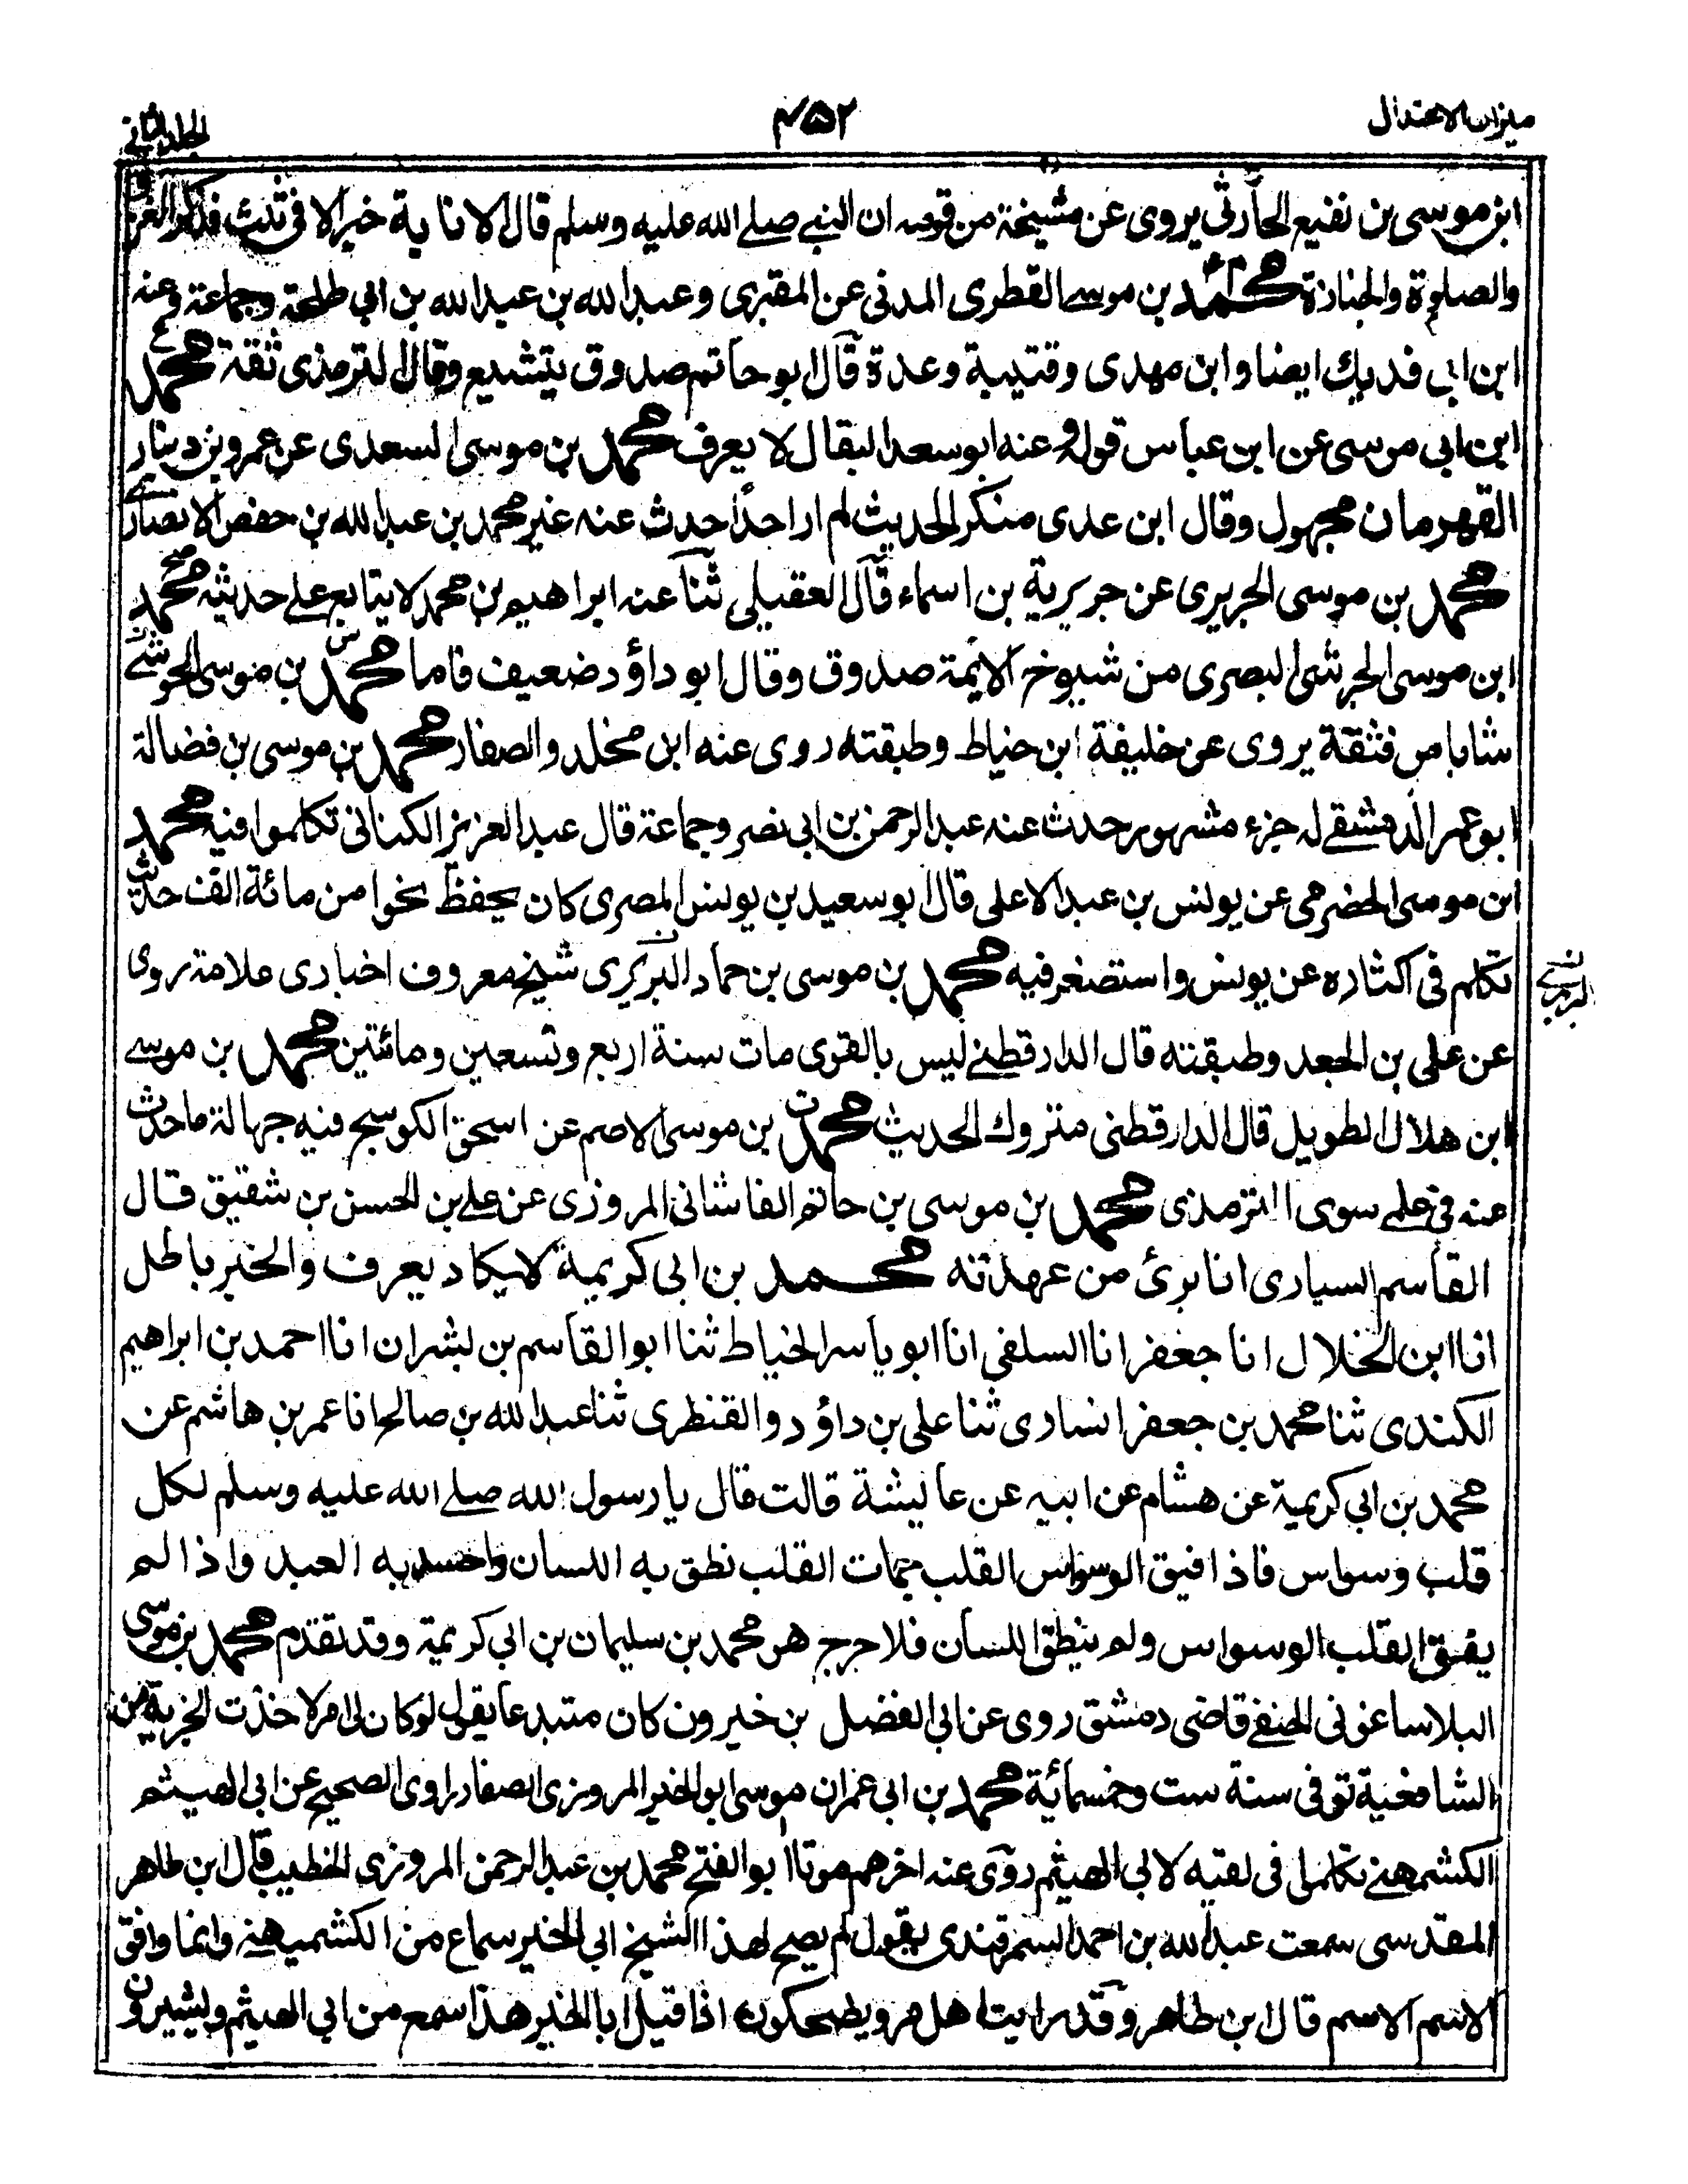 ميزان الاعتدال
٤٥٢
الجلد الثاني
ابن موسى بن نفيع الحارثي يروى عن مشيخة من قومه ان النبي صلے الله عليه وسلم قال الاناية خير الا فى ثلث فذكر الغزو
والصلوة والجنازة محمد بن موسے القطرى المدنى عن المقبرى وعبد الله بن عبد الله بن ابي طلحة وجماعة وعنه
ابن ابى فديك ايضا وابن مهدى وقتيبة وعدة قال ابو حاتم صدوق يتشيع وقال الترمذى ثقة محمد
ابن ابى موسى عن ابن عباس قوله وعنه ابو سعد البقال لا يعرف محمد بن موسى السعدى عن عمرو بن دينار
القهرمان مجهول وقال ابن عدى منكر الحديث لم ار احدا حدث عنه غير محمد بن عبد الله بن حفص الانصارے
محمد بن موسى الجريرى عن جريرية بن اسماء قال العقيلى ثنا عنه ابراهيم بن محمد لا يتابع علے حديثه محمد
ابن موسى الحرشى البصرى من شيوخ الائمة صدوق وقال ابو داؤد ضعيف فاما محمد بن موسى الحرشے
شاباص فثقة يروى عن خليفة ابن خياط وطبقته روى عنه ابن مخلد والصفار محمد بن موسى بن فضالة
ابو عمر الدمشقے له جزء مشهور حدث عنه عبد الرحمن بن ابى نصر وجماعة قال عبد العزيز الكنانى تكلموا فيه محمد
ابن موسى الحضرمى عن يونس بن عبد الاعلى قال ابو سعيد بن يونس المصرى كان يحفظ نحوا من مائة الف حديث
تكلم فى اكثاره عن يونس واستصغر فيه محمد بن موسى بن حماد البربرى شيخ معروف اخبارى علامة روى
عن على بن الجعد وطبقته قال الدارقطنے ليس بالقوى مات سنة اربع وتسعين ومائتين محمد بن موسے
ابن هلال الطويل قال الدارقطنى متروك الحديث محمد بن موسى الاصم عن اسحق الكوسج فيه جهالة ما حدث
عنه فى علمے سوى االترمذى محمد بن موسى بن حاتم الفاشانى المروزى عن علے بن الحسن بن شقيق قال
القاسم السيارى انا برئ من عهدته محمد بن ابى كريمة لا يكاد يعرف والخبر باطل
انا ابن الخلال انا جعفر انا السلفى انا ابو ياسر الخياط ثنا ابو القاسم بن بشران انا احمد بن ابراهيم
الكندى ثنا محمد بن جعفر السارى ثنا على بن داؤد والقنطرى ثنا عبد الله بن صالح انا عمر بن هاشم عن
محمد بن ابى كريمة عن هشام عن ابيه عن عايشة قالت قال يا رسول الله صلے الله عليه وسلم لكل
قلب وسواس فاذا فيق الوسواس القلب القلب نطق به اللسان به العبد واذا لم
يفتق القلب الوسواس ولم ينطق اللسان فلا حرج هو محمد بن سليمان بن ابى كريمة وقد تقدم محمد بن موسى
البلاساغونى الحنفے قاضى دمشق روى عن ابى الفضل بن خيرون كان مبتدعا يقول لو كان لى امر لاخذت الجزية من
الشافعية توفى سنة ست وخمسمائة محمد بن ابى عمران موسى ابو الخير المروزى الصفار راوى الصحيح عن ابى الهيثم
الكشمهنے تكلم فى لقيه لابى الهيثم روى عنه اخرهم موتا ابو الفتح محمد بن عبد الرحمن المروزى الخطيب قال ابن طاهر
المقدسى سمعت عبد الله بن احمد السمرقندى يقول لم يصح لهذا الشيخ ابى الخير سماع من الكشميهنے وانما وافق
الاسم الاسم قال ابن طاهر وقد رايت اهل مرو يضحكون اذا قيل ابا الخير هذا سمع من ابى الهيثم ويشيرون